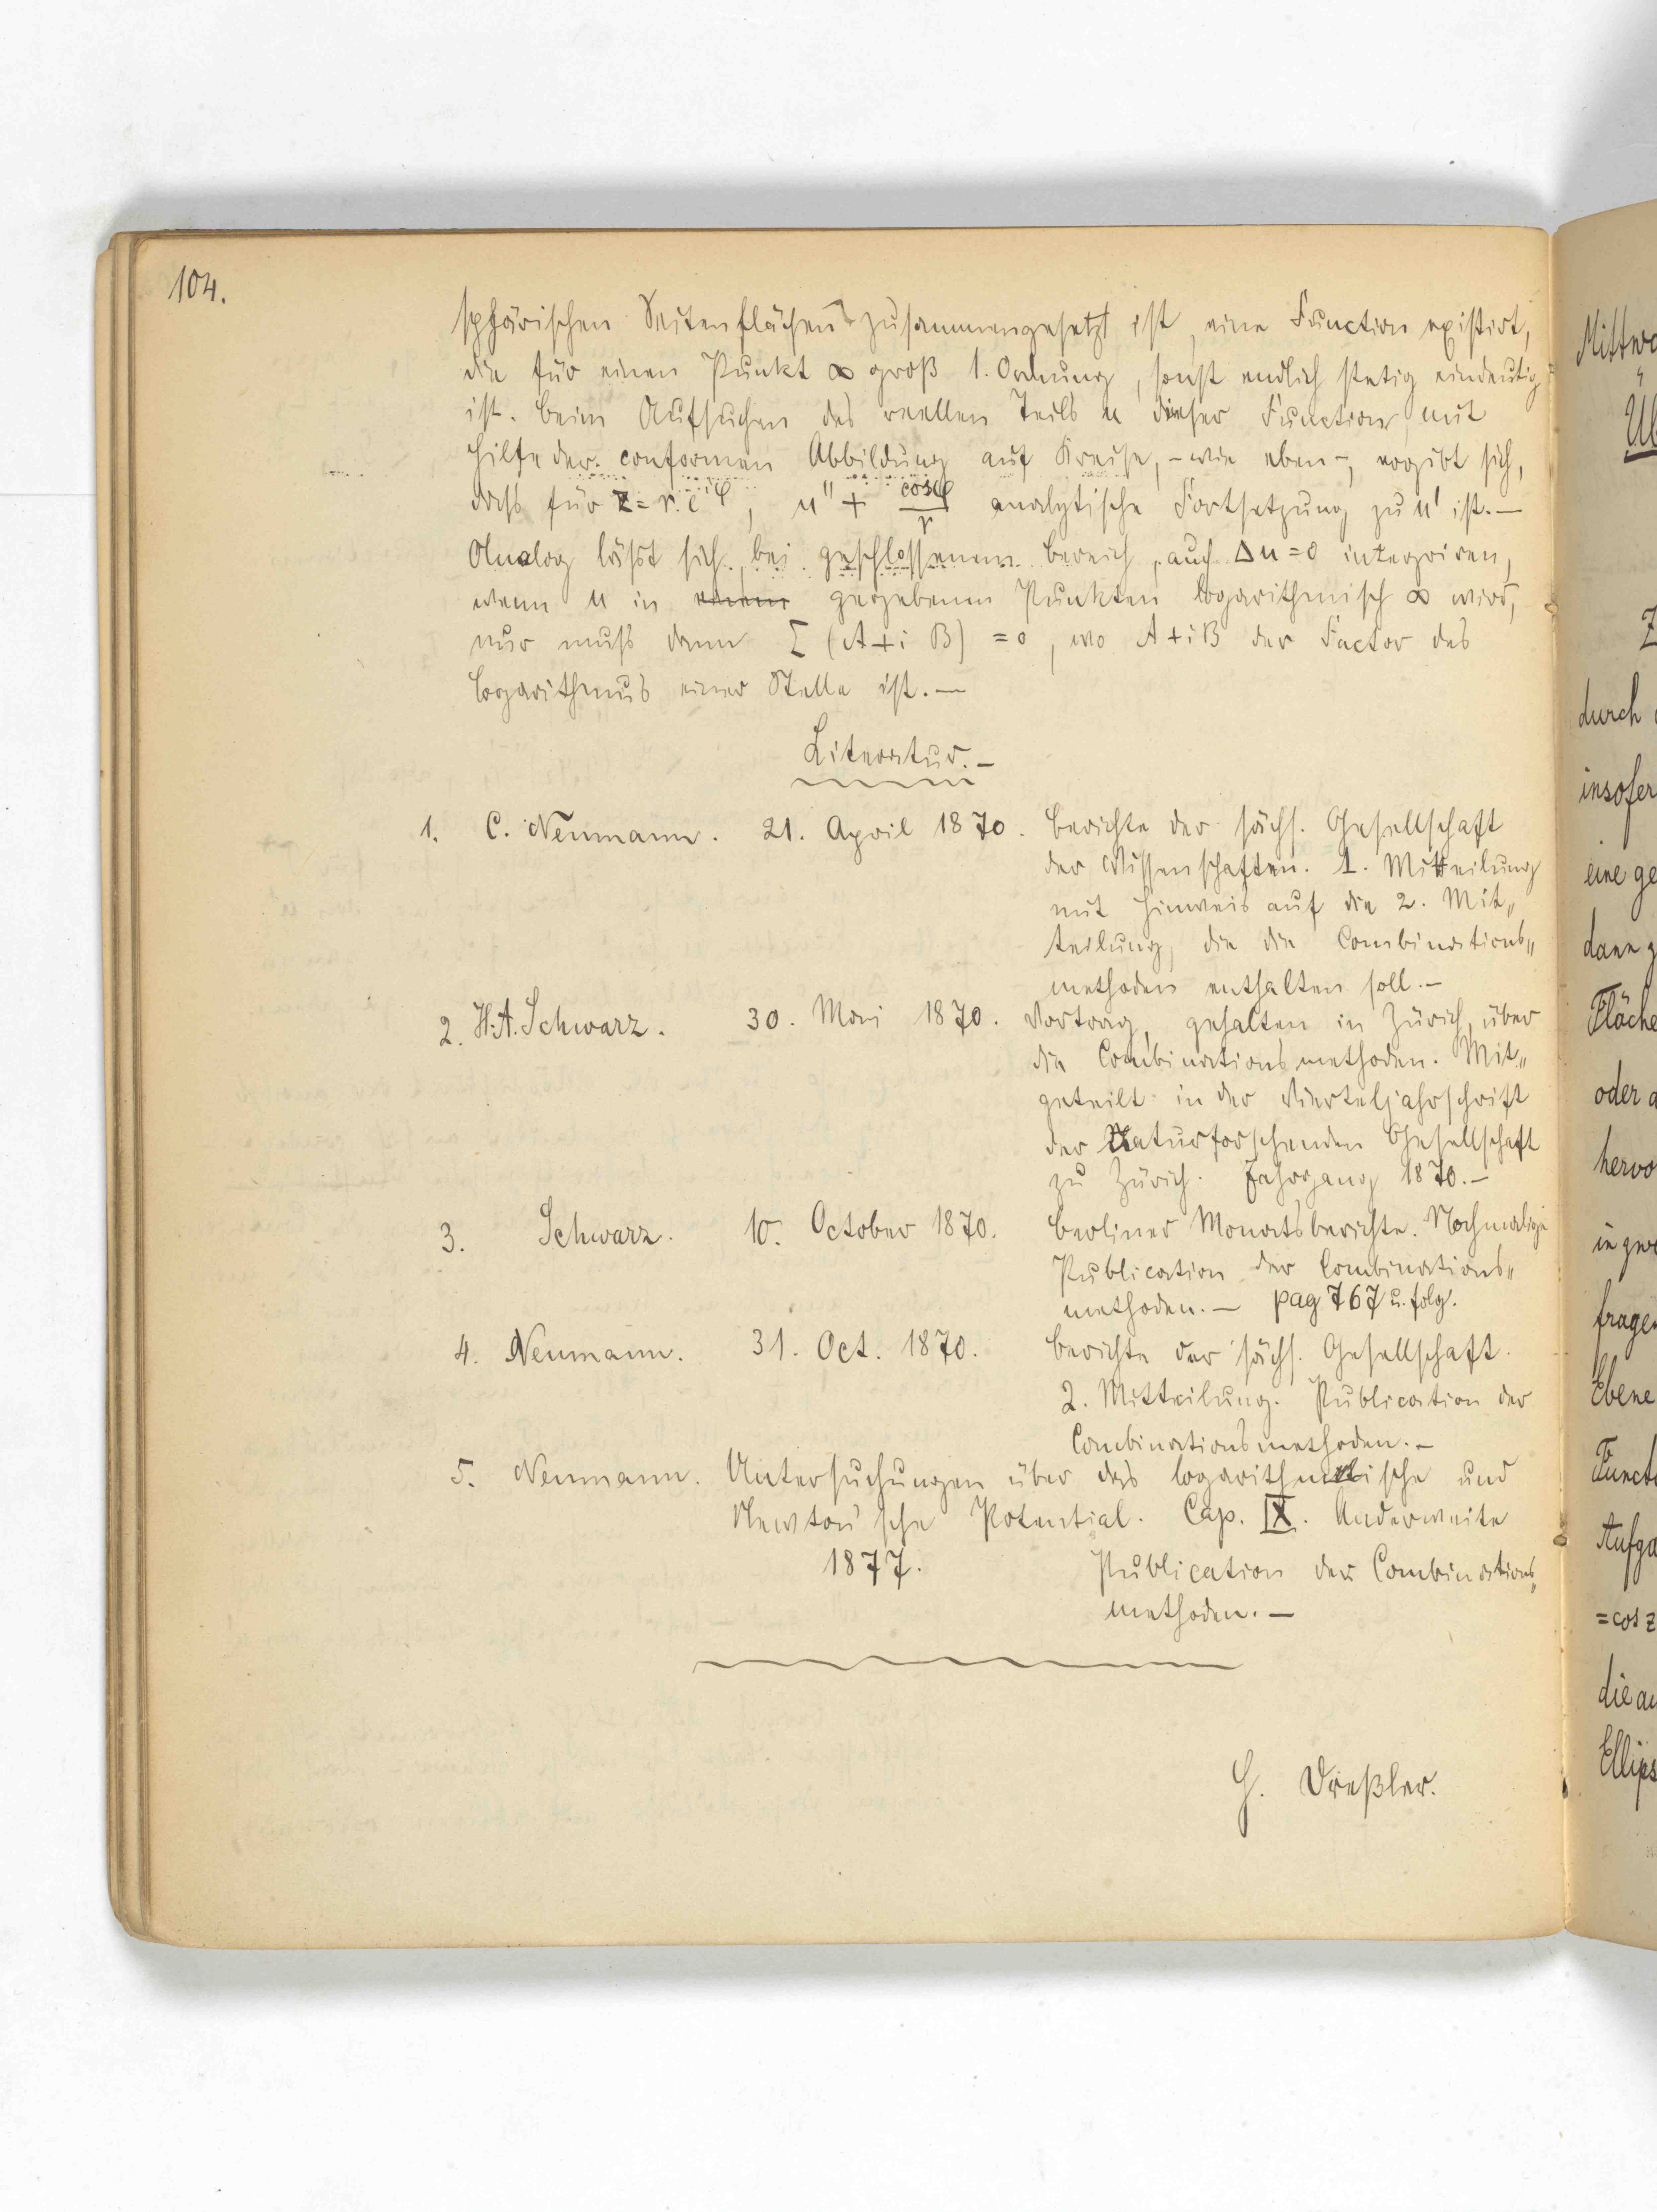 104.
sphärischen Seitenflächen zusammengesetzt ist, eine Function existirt,
die für einen Punkt ∞ groß 1. Ordnung, sonst endlich stetig eindeutig
ist. Beim Aufsuchen des reellen Teils u dieser Function mit
Hilfe der conformen Abbildung auf Kreise, - wie eben -, ergibt sich,
dass für z = r.e^{iφ}, u'' + cosφ/r analytische Fortsetzung zu u' ist. —
Analog läßt sich, bei geschlossenem Bereich, auch Δu = 0 integriren,
wenn u in einem gegebenen Punkten logarithmisch ∞ wird,
nur muß dann Σ (A + i B) = 0, wo A + iB der Factor des
Logarithmus einer Stelle ist. —
Literatur. —
1. C. Neumann. 21. April 1870. Berichte der sächs. Gesellschaft
der Wissenschaften. 1. Mitteilung
mit Hinweis auf die 2. Mit„
teilung, die die Combinations„
methoden enthalten soll. —
2. H.A. Schwarz. 30. Mai 1870. Vortrag, gehalten in Zürich, über
die Combinationsmethoden. Mit„
geteilt in der Vierteljahrschrift
der Naturforschenden Gesellschaft
zu Zürich. Jahrgang 1870. —
3. Schwarz. 10. October 1870. Berliner Monatsberichte. Nochmalige
Publication der Combinations„
methoden. — pag 767 u. folg.
4. Neumann. 31. Oct. 1870. Berichte der sächs. Gesellschaft.
2. Mitteilung. Publication der
Combinationsmethoden. —
5. Neumann. Untersuchungen über das logarithmische und
Newton'sche Potential. Cap. IX. Anderweite
1877. Publication der Combinations„
methoden. —
G. Dreßler.
durch
insofer
eine ge
dann g
Fläche
oder a
hervo
in gew
frage
Ebene
Functi
Aufga
= cos z
die au
Ellips